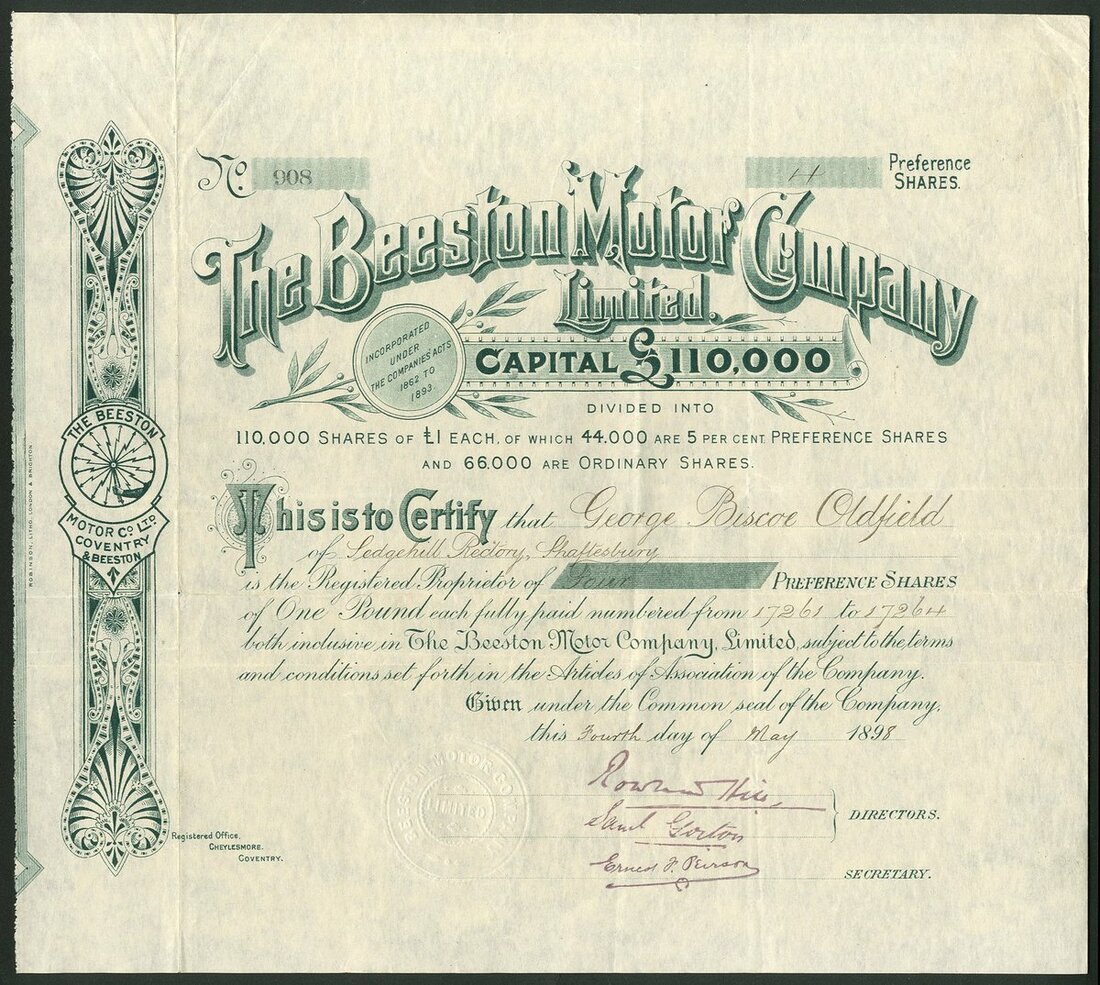 No. 908
4 Preference
SHARES.
The Beeston Motor Company
Limited.
INCORPORATED
UNDER
THE COMPANIES' ACTS
1862 TO
1893.
CAPITAL £110,000
DIVIDED INTO
110,000 SHARES OF £1 EACH, OF WHICH 44,000 ARE 5 PER CENT. PREFERENCE SHARES
AND 66,000 ARE ORDINARY SHARES.
This is to Certify that George Biscoe Oldfield
of Sedgehill Rectory, Shaftesbury
is the Registered Proprietor of Four PREFERENCE SHARES
of One Pound each fully paid numbered from 17261 to 17264
both inclusive in The Beeston Motor Company, Limited, subject to the terms
and conditions set forth in the Articles of Association of the Company.
Given under the Common seal of the Company,
this Fourth day of May 1898
Rowland Hill
Saml Gorton
DIRECTORS.
Ernest F. Peirson
SECRETARY.
BEESTON MOTOR CO
LIMITED
Registered Office,
CHEYLESMORE.
COVENTRY.
THE BEESTON
MOTOR CO LTD
COVENTRY
& BEESTON
ROBINSON, LITHO, LONDON & BRIGHTON